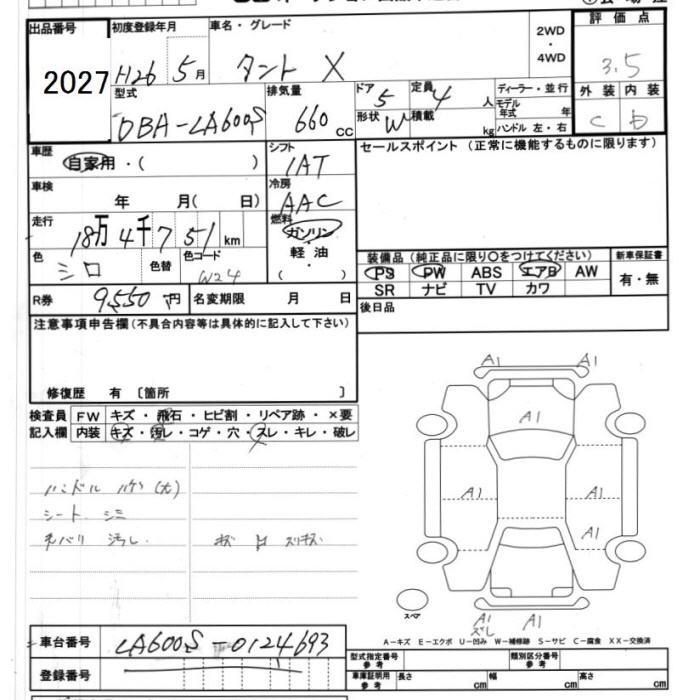 出品番号 初度登録年月 車名・グレード 2WD・4WD 評価点
2027 H26 5月 タント X 3.5
外装 内装
C b
型式 排気量 ドア 定員 ディーラー・並行
DBA-LA600S 660cc 5 4人 モデル年式 年
形状 W 積載 kg ハンドル 左・右
車歴 シフト セールスポイント (正常に機能するものに限ります)
自家用・( ) IAT
車検 冷房
年 月( 日) AAC
走行 燃料
18万4千751km ガソリン・軽油( )
色 色替 色コード
シロ W24
装備品 (純正品に限り○をつけてください) 新車保証書
PS PW ABS エアB AW 有・無
SR ナビ TV カワ
R券 9550円 名変期限 月 日
後日品
注意事項申告欄(不具合内容等は具体的に記入して下さい)
修復歴 有 〔箇所 〕
検査員記入欄 FW キズ・飛石・ヒビ割・リペア跡・×要
内装 キズ・汚レ・コゲ・穴・スレ・キレ・破レ
ハンドル ハゲ(大)
シート シミ
汚レ
キズ スリキズ
A1 A1
A1
A1 A1
A1
スペア
A1 A1
ズレ
A-キズ E-エクボ U-凹み W-補修跡 S-サビ C-腐食 XX-交換済
車台番号 LA600S-0124693
登録番号
型式指定番号 参考 類別区分番号 参考
車庫証明用 参考 長さ cm 幅 cm 高さ cm